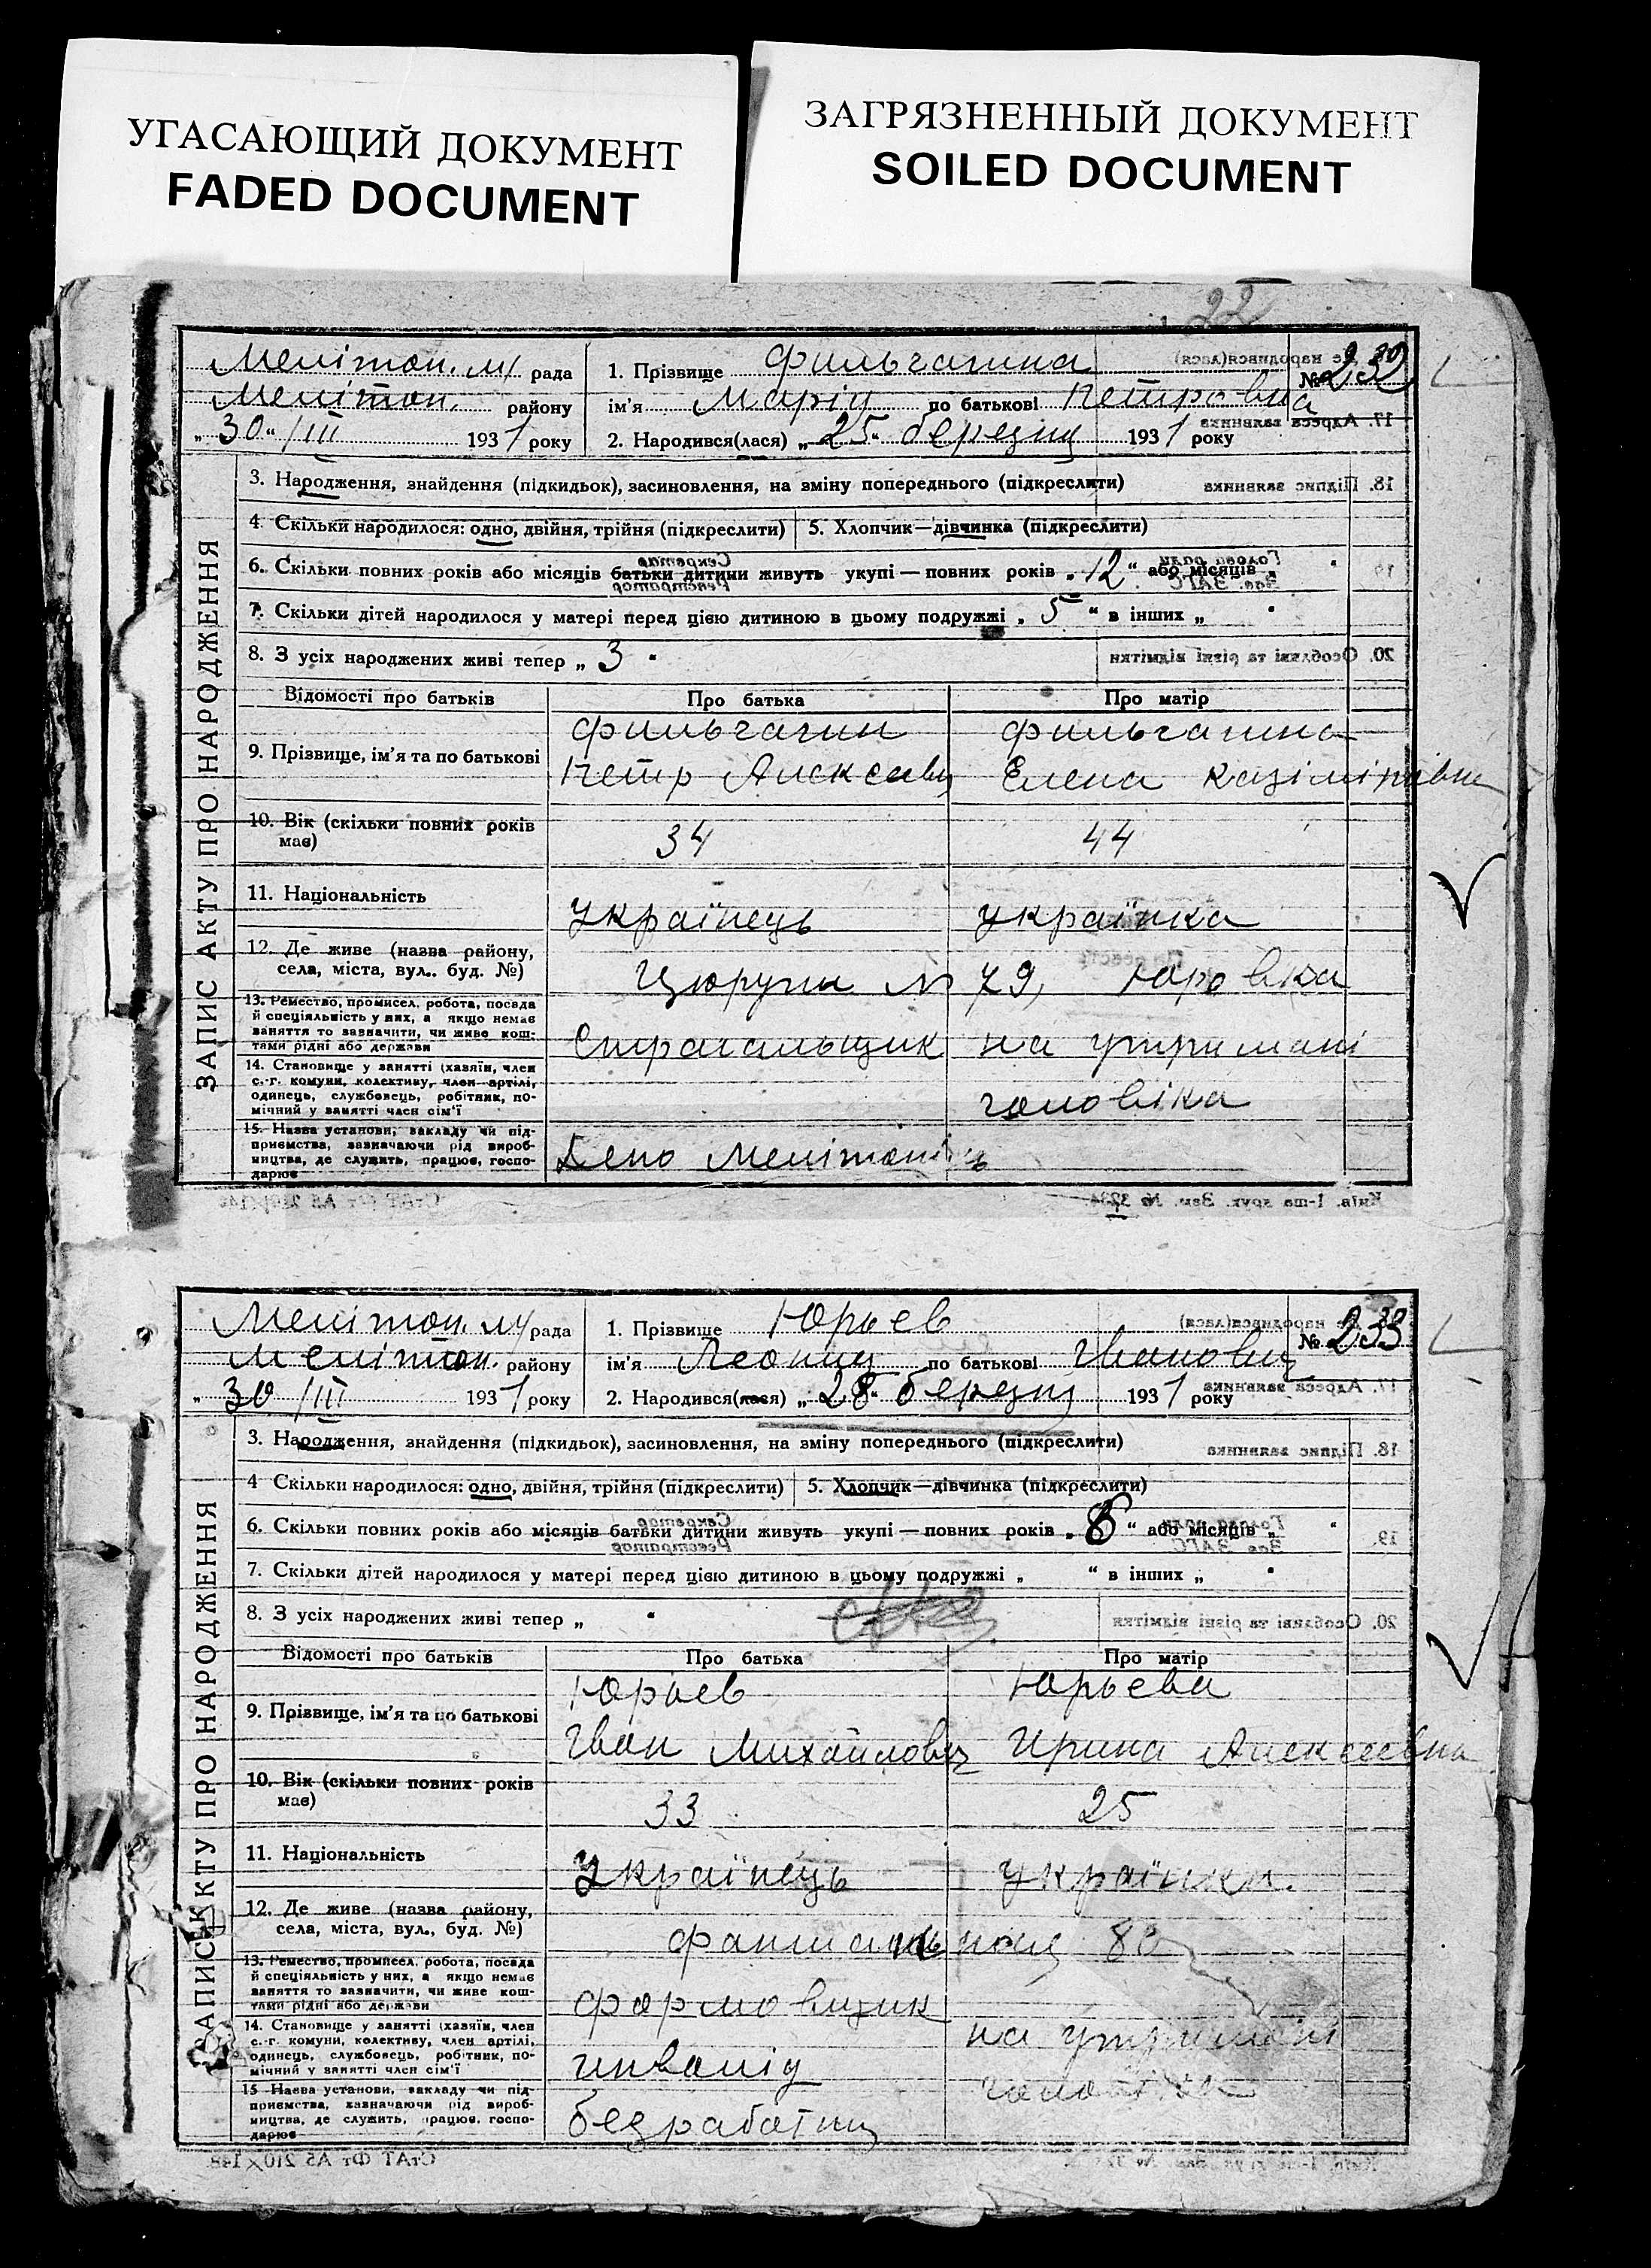 УГАСАЮЩИЙ ДОКУМЕНТ
FADED DOCUMENT
ЗАГРЯЗНЕННЫЙ ДОКУМЕНТ
SOILED DOCUMENT
22
Мелітоп. м/ рада
Мелітоп. району
„30“/III 1931 року
1. Прізвище Фильчагина
№ 232
ім'я Марія по батькові Петровна
2. Народився(лася) „25“ березня 1931 року
ЗАПИС АКТУ ПРО НАРОДЖЕННЯ
3. Народження, знайдення (підкидьок), засиновлення, на зміну попереднього (підкреслити)
4. Скільки народилося: одно, двійня, трійня (підкреслити) 5. Хлопчик—дівчинка (підкреслити)
6. Скільки повних років або місяців батьки дитини живуть укупі — повних років „12“ або місяців „ “
7. Скільки дітей народилося у матері перед цією дитиною в цьому подружжі „5“ в інших „ “
8. З усіх народжених живі тепер „3“
Відомості про батьків Про батька Про матір
9. Прізвище, ім'я та по батькові
Фильчагин Фильчагина
Петр Алексеевич Елена Казімірівна
10. Вік (скільки повних років має) 34 44
11. Національність
Українець Українка
12. Де живе (назва району, села, міста, вул., буд. №)
Цюрупи № 79, Юровка
13. Ремество, промисел, робота, посада й спеціяльність у них, а якщо немає заняття то зазначити, чи живе коштами рідні або держави
Строгальщик на утримані
14. Становище у занятті (хазяїн, член с.-г. комуни, колективу, член артілі, одинець, службовець, робітник, помічний у занятті член сім'ї
чоловіка
15. Назва установи, закладу чи підприємства, зазначаючи рід виробництва, де служить, працює, господарює
Депо Мелітополь
Київ. 1-ша друк. Зам. № 3234.
Мелітоп. м/ рада
Мелітоп. району
„30/III 1931 року
1. Прізвище Юрьев
№ 233
ім'я Леонид по батькові Іванович
2. Народився(лася) „28“ березня 1931 року
ЗАПИС АКТУ ПРО НАРОДЖЕННЯ
3. Народження, знайдення (підкидьок), засиновлення, на зміну попереднього (підкреслити)
4 Скільки народилося: одно, двійня, трійня (підкреслити) 5. Хлопчик—дівчинка (підкреслити)
6. Скільки повних років або місяців батьки дитини живуть укупі — повних років „8“ або місяців „ “
7. Скільки дітей народилося у матері перед цією дитиною в цьому подружжі „ “ в інших „ “
8. З усіх народжених живі тепер „ “
Відомості про батьків Про батька Про матір
9. Прізвище, ім'я та по батькові
Юрьев Юрьева
Іван Михайлович Ирина Алексеевна
10. Вік (скільки повних років має) 33 25
11. Національність
Українець Українка.
12. Де живе (назва району, села, міста, вул., буд. №)
80
13. Ремество, промисел, робота, посада й спеціяльність у них, а якщо немає заняття то зазначити, чи живе коштами рідні або держави
формовщик
14. Становище у занятті (хазяїн, член с.-г. комуни, колективу, член артілі, одинець, службовець, робітник, помічний у занятті член сім'ї
инвалід на утримані
15 Назва установи, закладу чи підприємства, зазначаючи рід виробництва, де служить, працює, господарює
чоловіка